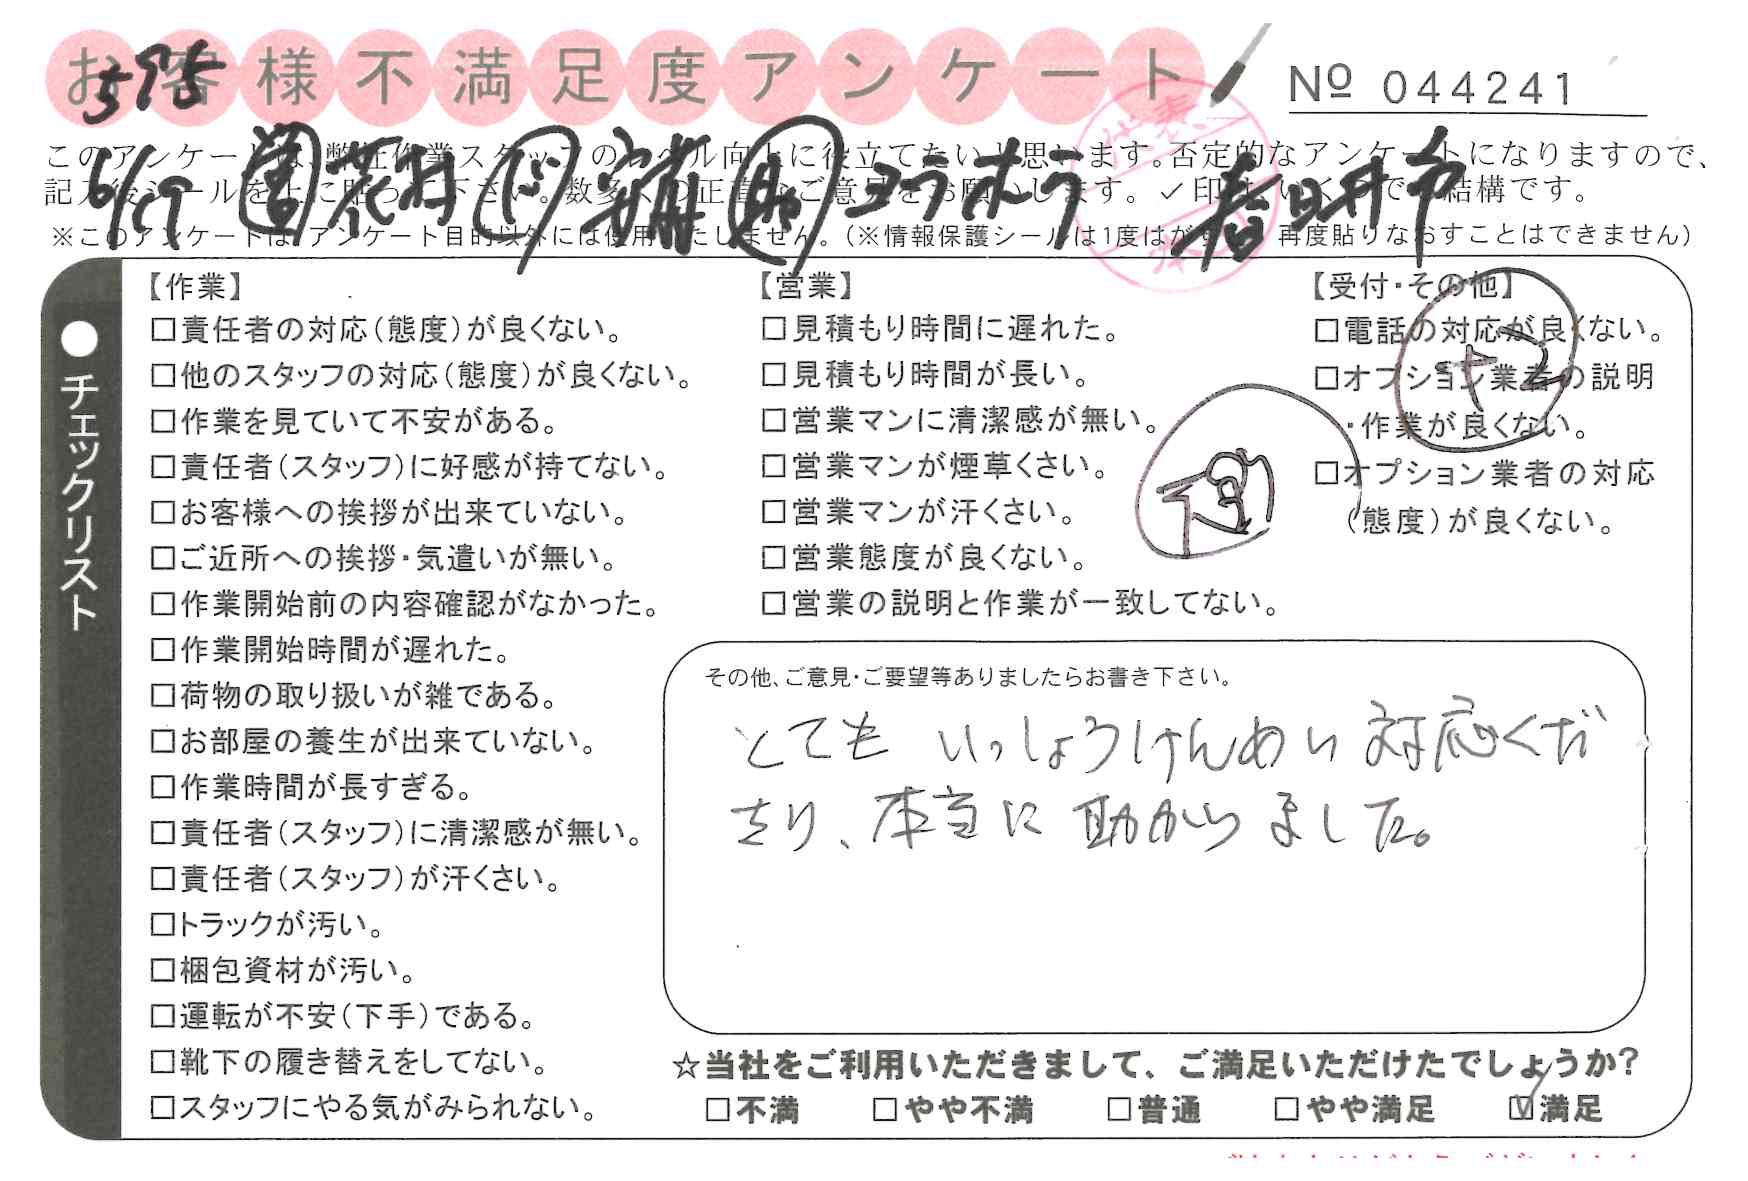 お客様不満足度アンケート
№ 044241
このアンケートは、弊社作業スタッフのレベル向上に役立てたいと思います。否定的なアンケートになりますので、
記入後シールを上に貼って下さい。数多くの正直なご意見をお願いします。✓印はいくつでも結構です。
※このアンケートは、アンケート目的以外には使用いたしません。(※情報保護シールは1度はがすと、再度貼りなおすことはできません)
575
6/19 営 花村 安藤 助 コラボラ 春日井市
●チェックリスト
【作業】
□責任者の対応(態度)が良くない。
□他のスタッフの対応(態度)が良くない。
□作業を見ていて不安がある。
□責任者(スタッフ)に好感が持てない。
□お客様への挨拶が出来ていない。
□ご近所への挨拶・気遣いが無い。
□作業開始前の内容確認がなかった。
□作業開始時間が遅れた。
□荷物の取り扱いが雑である。
□お部屋の養生が出来ていない。
□作業時間が長すぎる。
□責任者(スタッフ)に清潔感が無い。
□責任者(スタッフ)が汗くさい。
□トラックが汚い。
□梱包資材が汚い。
□運転が不安(下手)である。
□靴下の履き替えをしてない。
□スタッフにやる気がみられない。
【営業】
□見積もり時間に遅れた。
□見積もり時間が長い。
□営業マンに清潔感が無い。
□営業マンが煙草くさい。
□営業マンが汗くさい。
□営業態度が良くない。
□営業の説明と作業が一致してない。
【受付・その他】
□電話の対応が良くない。
□オプション業者の説明
・作業が良くない。
□オプション業者の対応
(態度)が良くない。
+2
その他、ご意見・ご要望等ありましたらお書き下さい。
とても いっしょうけんめい 対応くだ
さり、本当に 助かりました。
☆当社をご利用いただきまして、ご満足いただけたでしょうか?
□不満 □やや不満 □普通 □やや満足 ☑満足